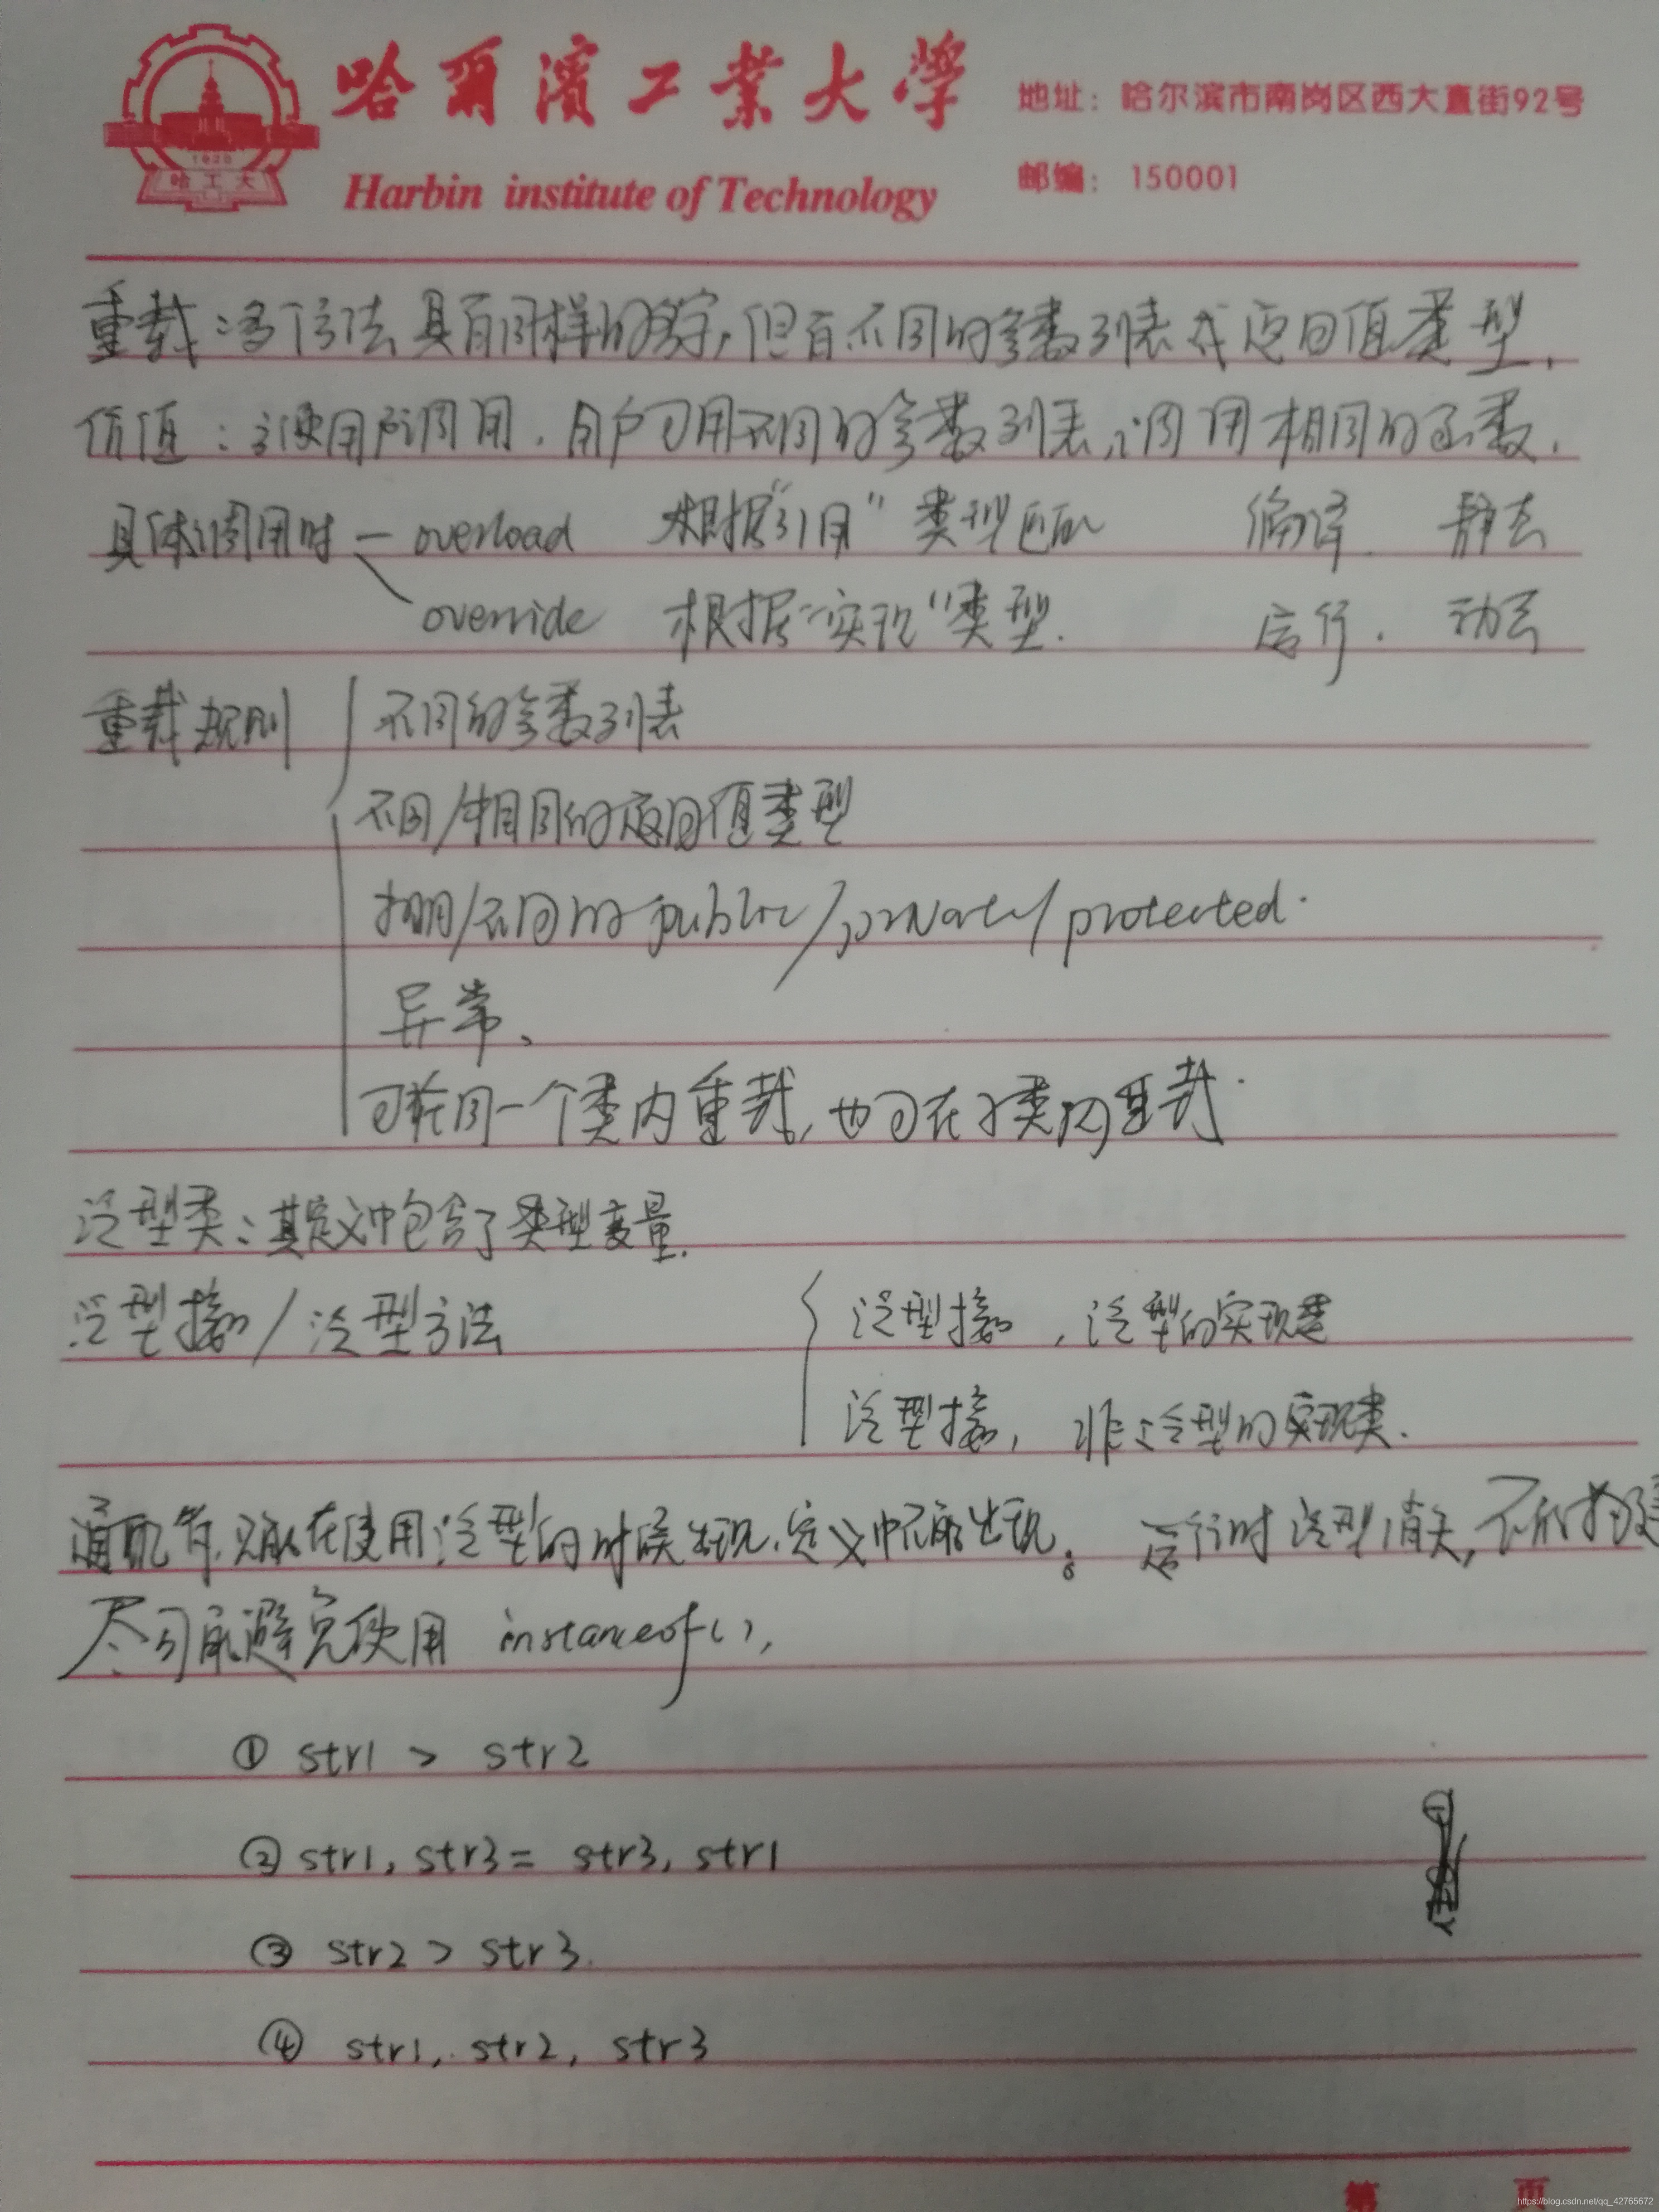 哈爾濱工業大學
Harbin institute of Technology
地址：哈尔滨市南岗区西大直街92号
邮编：150001
1920
哈工大
重载：多个方法具有同样的名字，但有不同的参数列表或返回值类型．
价值：方便用户调用．用户可用不同的参数列表，调用相同的函数．
具体调用时 — overload 根据“引用”类型匹配 编译． 静态
override 根据“实现”类型． 运行． 动态
重载规则 不同的参数列表
不同/相同的返回值类型
相同/不同的public/private/protected．
异常、
可在同一个类内重载，也可在子类内重载．
泛型类：其定义中包含了类型变量．
泛型接口/泛型方法 泛型接口，泛型的实现类
泛型接口，非泛型的实现类．
通配符，只能在使用泛型的时候出现，定义中不能出现。 运行时泛型消失，不能
尽可能避免使用 instanceof()，
① str1 > str2
② str1, str3 = str3, str1
③ str2 > str3.
④ str1, str2, str3
第 页
https://blog.csdn.net/qq_42765672